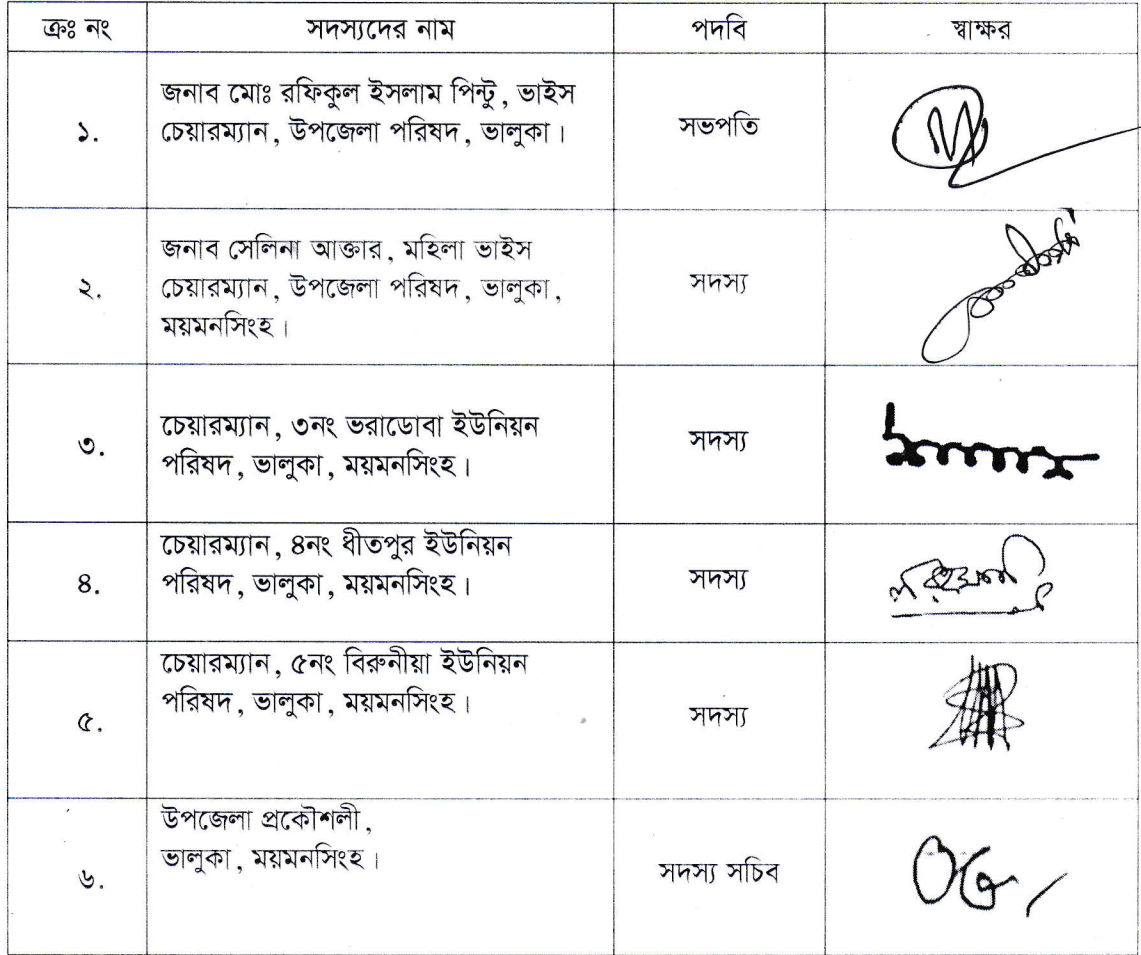 ক্রঃ নং সদস্যদের নাম পদবি স্বাক্ষর
জনাব মোঃ রফিকুল ইসলাম পিন্টু, ভাইস
১. চেয়ারম্যান, উপজেলা পরিষদ, ভালুকা। সভপতি
জনাব সেলিনা আক্তার, মহিলা ভাইস
২. চেয়ারম্যান, উপজেলা পরিষদ, ভালুকা, সদস্য
ময়মনসিংহ।
৩. চেয়ারম্যান, ৩নং ভরাডোবা ইউনিয়ন সদস্য
পরিষদ, ভালুকা, ময়মনসিংহ।
চেয়ারম্যান, ৪নং ধীতপুর ইউনিয়ন
৪. পরিষদ, ভালুকা, ময়মনসিংহ। সদস্য
চেয়ারম্যান, ৫নং বিরুনীয়া ইউনিয়ন
৫. পরিষদ, ভালুকা, ময়মনসিংহ। সদস্য
উপজেলা প্রকৌশলী,
৬. ভালুকা, ময়মনসিংহ। সদস্য সচিব